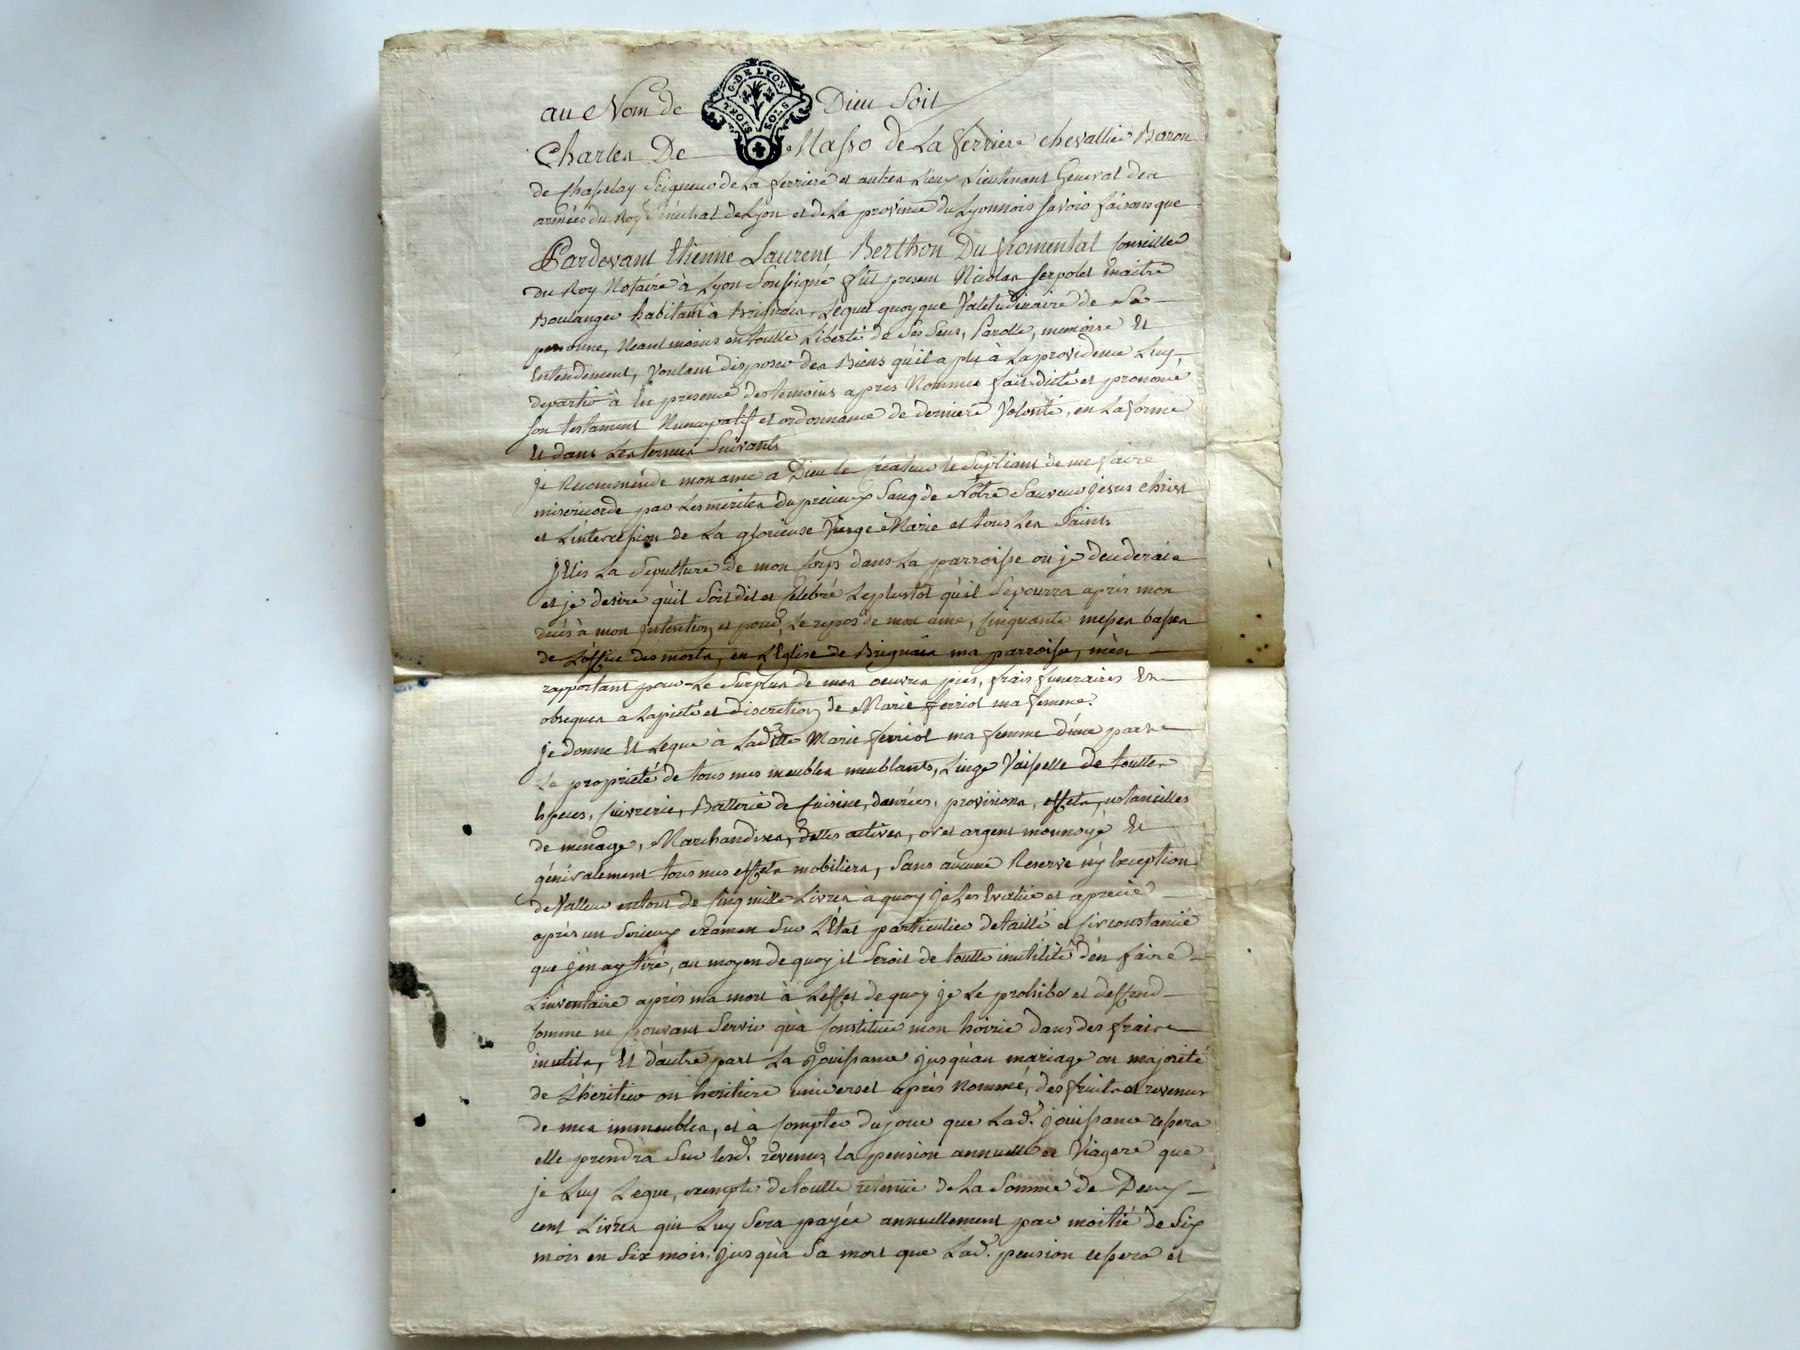 G. DE LYON
TROIS SOLS
au Nom de Dieu Soit
Charles De Masso de La ferriere chevallier Baron
de Chaselay Seigneur de La ferriere et autres Lieux Lieutenant General des
armées du Roy Sénéchal de Lyon et de La province du Lyonnois Savoir faisons que
Pardevant Etienne Laurent Berthon Du fromental Conseiller
du Roy Notaire à Lyon Soussigné fut present Nicolas Serpolet maitre
Boulanger habitant à Brignais, Lequel quoyque Valetudinaire de Sa
personne, Neantmoins en toutte Liberté de Ses Sens, Parolle, memoire Et
Entendement, voulant disposer des Biens qu'il a plu à La providence Luy
departir à En presence des temoins apres Nommés fait dicté et prononcé
son testament Nuncupatif et ordonnance de derniere Volonté, en La forme
Et dans Les termes Suivants
je Recommende mon ame a Dieu le Createur le Supliant de me faire
misericorde par Les merites du precieux Sang de Nôtre Sauveur Jesus Christ
et L'intercession de La glorieuse Vierge Marie et tous Les Saints
J'Elis La Sepulture de mon Corps dans La parroisse ou je decederais
et je desire qu'il Soit dit et Celebré Leplustot qu'il Sepourra après mon
decès à mon Intention et pour Le repos de mon ame, Cinquante messes basses
de L'office des morts, en L'Eglise de Brignais ma parroisse, mèn
rapportant pour Le Surplus de mes oeuvres pies, frais funeraires Et
obseques a Lapieté et discretion de Marie ferriol ma femme.
je donne Et Legue à Laditte Marie ferriol ma femme d'une part
La proprieté de tous mes meubles meublants, Linge Vaisselle de touttes
Especes, Cuivrerie, Batterie de Cuisine, danrées, provisions, effets, ustancilles
de menage, Marchandises, dettes actives, or et argent monnoyé Et
génèralement tous mes effets mobiliers, Sans aucune Reserve n'y Exception
de Valleur entout de Cinq mille Livres à quoy je Les Evalue et aprecie
après un Serieux examen Sur L'Etat particulier detaillé et Circonstancié
que j'en ay tiré, au moyen de quoy il Seroit de toutte inutilité d'en faire
L'inventaire après ma mort à L'effet de quoy je Le prohibe et deffend
Comme ne pouvant Servir qu'à Constituer mon hoirie dans des frais
inutils, Et d'autre part La Jouissance jusqu'au mariage ou majorité
de L'heritier ou heritiere universel après Nommé, des fruits et revenus
de mes immeubles, et à Compter du jour que Lad. jouissance cessera
elle prendra Sur lesd. revenus la pension annuelle et Viagere que
je Luy Legue, exempte de toutte retenüe de La Somme de Deux
cent Livres qui Luy Sera payée annuellement par moitié de Six
mois en Six mois, jusqu'à Sa mort que Lad. pension cessera et